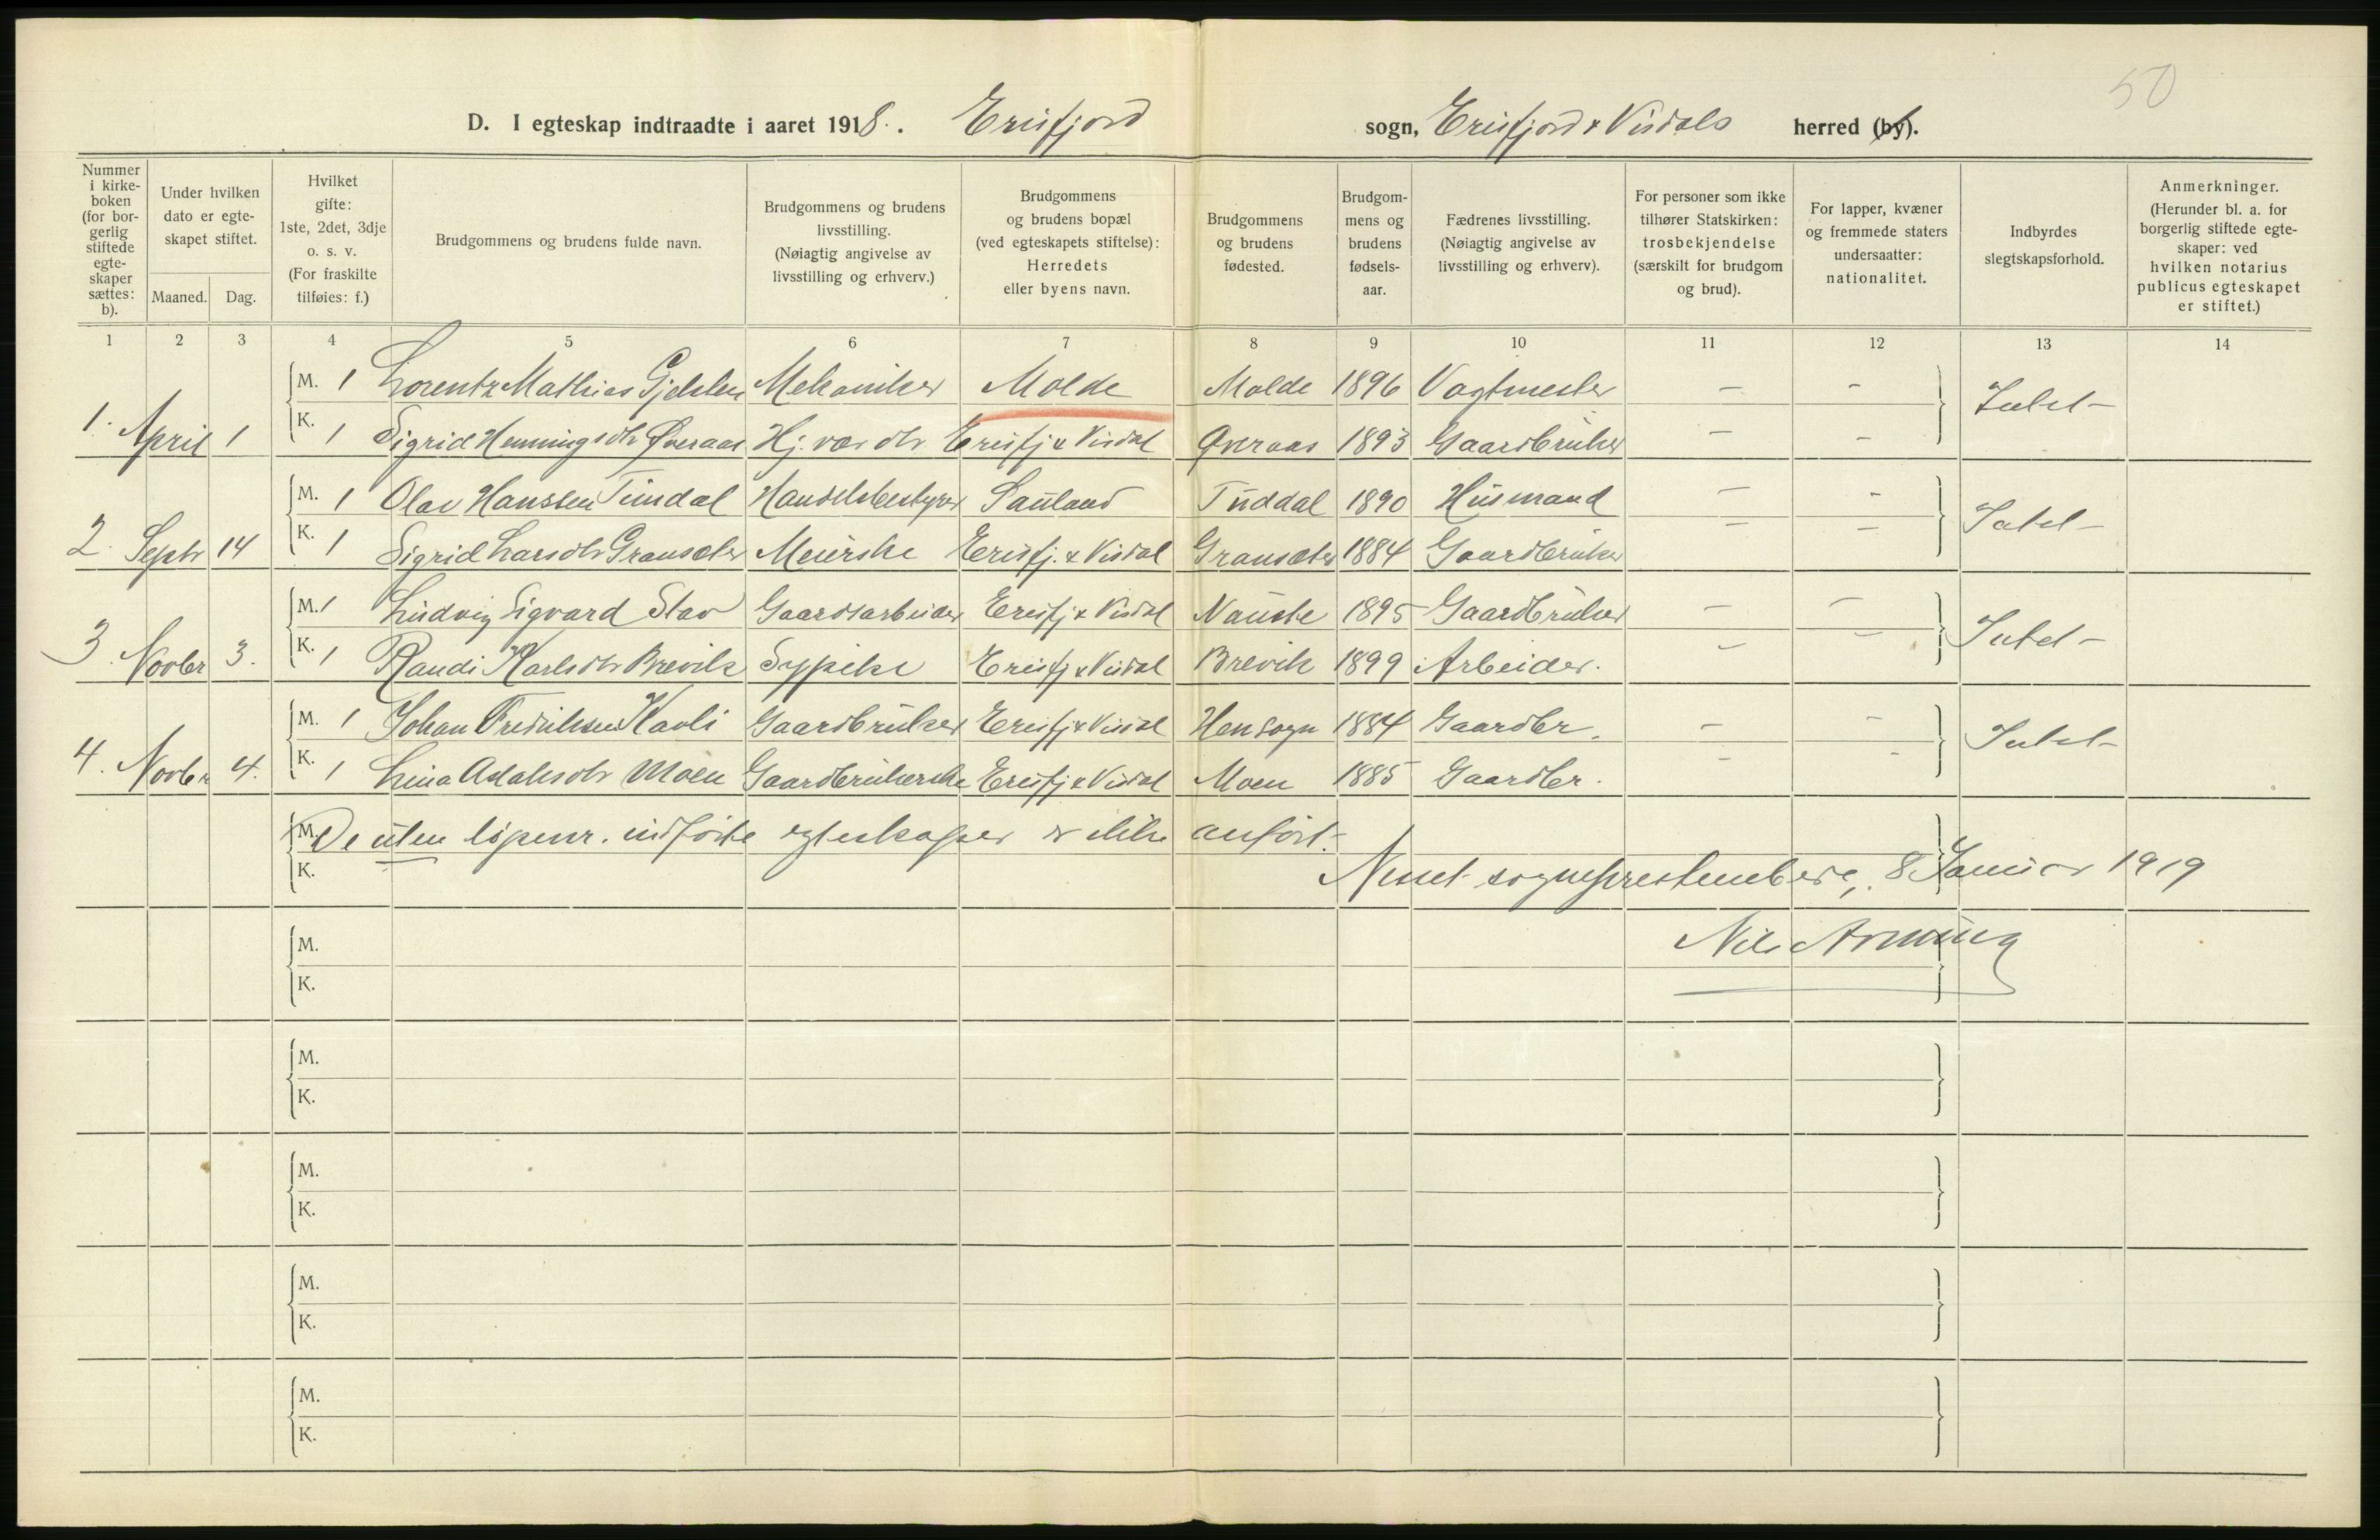 50
D. I egteskap indtraadte i aaret 1918. Eresfjord sogn, Eresfjord & Visdals herred (by).
Nummer i kirke-boken (for bor-gerlig stiftede egte-skaper sættes: b).
Under hvilken dato er egte-skapet stiftet.
Maaned. Dag.
Hvilket gifte: 1ste, 2det, 3dje o. s. v. (For fraskilte tilføies: f.)
Brudgommens og brudens fulde navn.
Brudgommens og brudens livsstilling. (Nøiagtig angivelse av livsstilling og erhverv.)
Brudgommens og brudens bopæl (ved egteskapets stiftelse): Herredets eller byens navn.
Brudgommens og brudens fødested.
Brudgom-mens og brudens fødsels-aar.
Fædrenes livsstilling. (Nøiagtig angivelse av livsstilling og erhverv).
For personer som ikke tilhører Statskirken: trosbekjendelse (særskilt for brudgom og brud).
For lapper, kvæner og fremmede staters undersaatter: nationalitet.
Indbyrdes slegtskapsforhold.
Anmerkninger. (Herunder bl. a. for borgerlig stiftede egte-skaper: ved hvilken notarius publicus egteskapet er stiftet.)
1 2 3 4 5 6 7 8 9 10 11 12 13 14
M. 1 Lorentz Mathias Gjelsten Mekaniker Molde Molde 1896 Vagtmester – –
1. April 1 K. 1 Sigrid Henningsdtr Øveraas Hj. vær. dtr Eresfj & Visdal Øveraas 1893 Gaardbruker – – Intet –
M. 1 Olav Hanssen Tindal Handelsbestyrer Sauland Tuddal 1890 Husmand – –
2. Septr 14 K. 1 Sigrid Larsdtr Gransæter Meierske Eresfj. & Visdal Gransæter 1884 Gaardbruker – – Intet –
M. 1 Ludvig Sigvard Stav Gaardsarbeider Eresfj & Visdal Nauste 1895 Gaardbruker – –
3. Novbr 3. K. 1 Randi Karlsdtr Brevik Sypike Eresfj & Visdal Brevik 1899 Arbeider. – – Intet –
M. 1 Johan Fredriksen Kavli Gaardbruker Eresfj & Visdal Hen sogn 1884 Gaardbr. – –
4. Novbr 4. K. 1 Lina Adalsdtr Moen Gaardbrukerske Eresfj & Visdal Moen 1885 Gaardbr. – – Intet –
M. De uten løpenr. indførte egteskaper er ikke anført.
K. Nesset sogneprestembede, 8 Januar 1919
M. Nils Arnving
K.
M.
K.
M.
K.
M.
K.
M.
K.